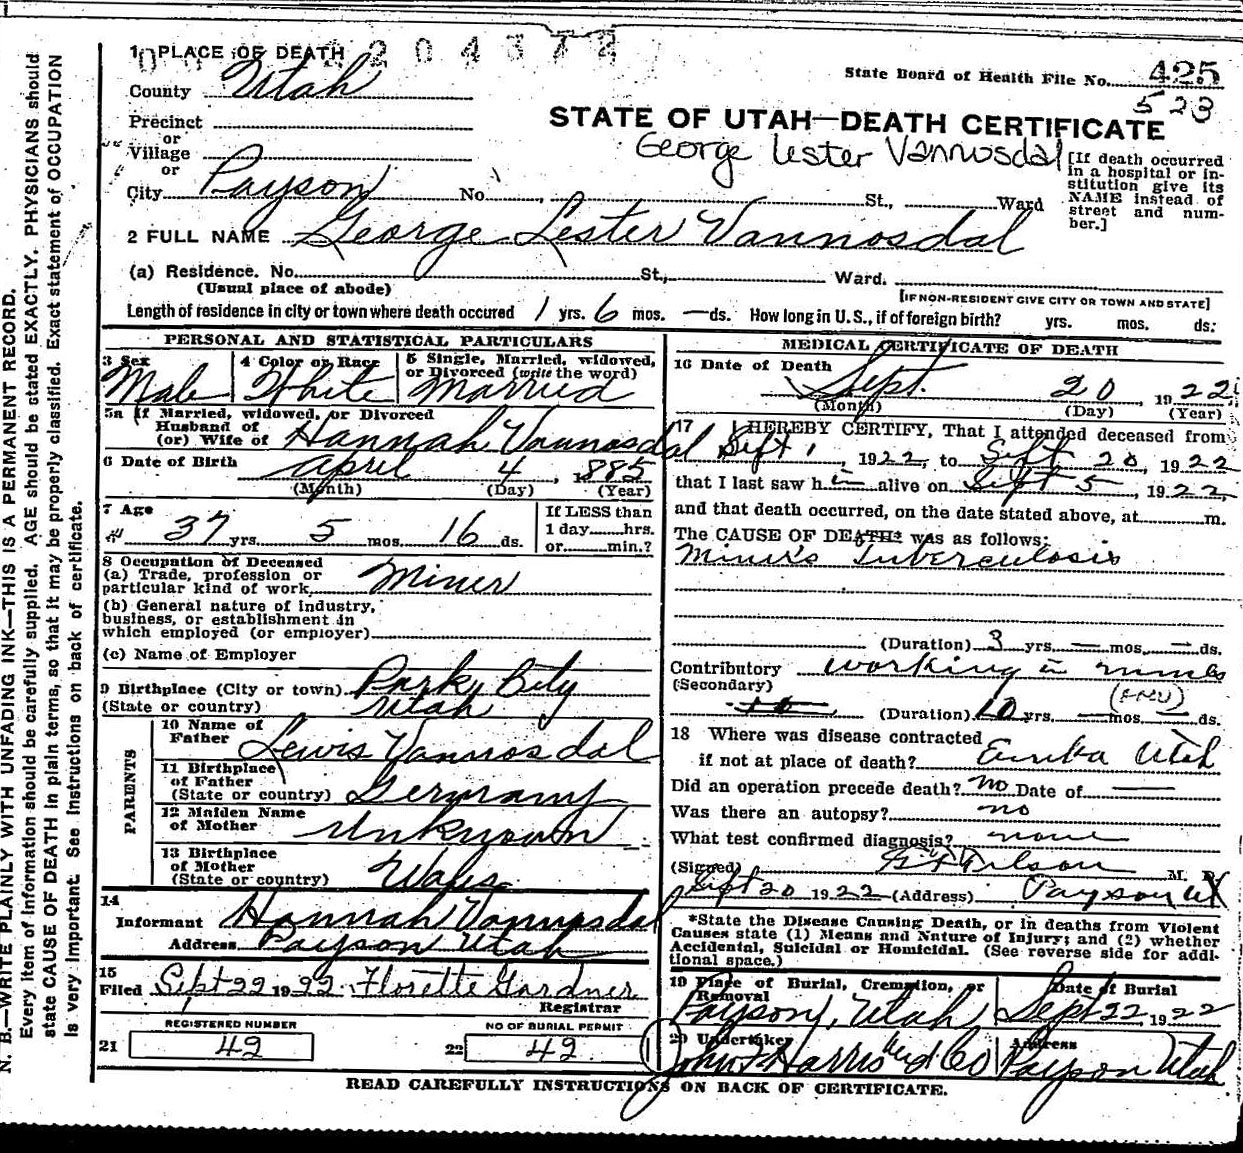 1 PLACE OF DEATH
204372
County Utah
State Board of Health File No. 425
523
Precinct
or
Village
or
City Payson No. St., Ward
STATE OF UTAH—DEATH CERTIFICATE
George Lester Vannosdal
[If death occurred in a hospital or in-
stitution give its
NAME instead of
street and num-
ber.]
2 FULL NAME George Lester Vannosdal
(a) Residence. No. St., Ward.
(Usual place of abode)
[IF NON-RESIDENT GIVE CITY OR TOWN AND STATE]
Length of residence in city or town where death occured 1 yrs. 6 mos. — ds. How long in U.S., if of foreign birth? yrs. mos. ds.
PERSONAL AND STATISTICAL PARTICULARS
3 Sex Male
4 Color or Race White
5 Single, Married, widowed,
or Divorced (write the word)
Married
5a If Married, widowed, or Divorced
Husband of
(or) Wife of Hannah Vannosdal
6 Date of Birth April 4, 1885
(Month) (Day) (Year)
7 Age 37 yrs. 5 mos. 16 ds.
If LESS than
1 day hrs.
or min.?
8 Occupation of Deceased
(a) Trade, profession or
particular kind of work Miner
(b) General nature of industry,
business, or establishment in
which employed (or employer)
(c) Name of Employer
9 Birthplace (City or town) Park City
(State or country) Utah
PARENTS
10 Name of
Father Lewis Vannosdal
11 Birthplace
of Father
(State or country) Germany
12 Maiden Name
of Mother Unknown
13 Birthplace
of Mother
(State or country) Wales
14
Informant Hannah Vannosdal
Address Payson Utah
15
Filed Sept 22 1922 Florette Gardner
Registrar
REGISTERED NUMBER
21 42
NO OF BURIAL PERMIT
22 42
MEDICAL CERTIFICATE OF DEATH
16 Date of Death
Sept. 20, 1922
(Month) (Day) (Year)
17 I HEREBY CERTIFY, That I attended deceased from
Sept 1, 1922, to Sept 20, 1922
that I last saw h alive on Sept 5, 1922,
and that death occurred, on the date stated above, at m.
The CAUSE OF DEATH* was as follows:
Miner's Tuberculosis
(Duration) 3 yrs. — mos. — ds.
Contributory working in mines
(Secondary)
(Duration) 10 yrs. — mos. — ds.
18 Where was disease contracted
if not at place of death? Eureka Utah
Did an operation precede death? No Date of —
Was there an autopsy? no
What test confirmed diagnosis? none
(Signed) M. D.
Sept 20 1922 (Address) Payson Ut
*State the Disease Causing Death, or in deaths from Violent
Causes state (1) Means and Nature of Injury; and (2) whether
Accidental, Suicidal or Homicidal. (See reverse side for addi-
tional space.)
19 Place of Burial, Cremation, or
Removal
Payson, Utah
Date of Burial
Sept 22, 1922
20 Undertaker
Address
Payson Utah
READ CAREFULLY INSTRUCTIONS ON BACK OF CERTIFICATE.
N. B.—WRITE PLAINLY WITH UNFADING INK—THIS IS A PERMANENT RECORD.
Every item of information should be carefully supplied. AGE should be stated EXACTLY. PHYSICIANS should
state CAUSE OF DEATH in plain terms, so that it may be properly classified. Exact statement of OCCUPATION
is very important. See instructions on back of certificate.